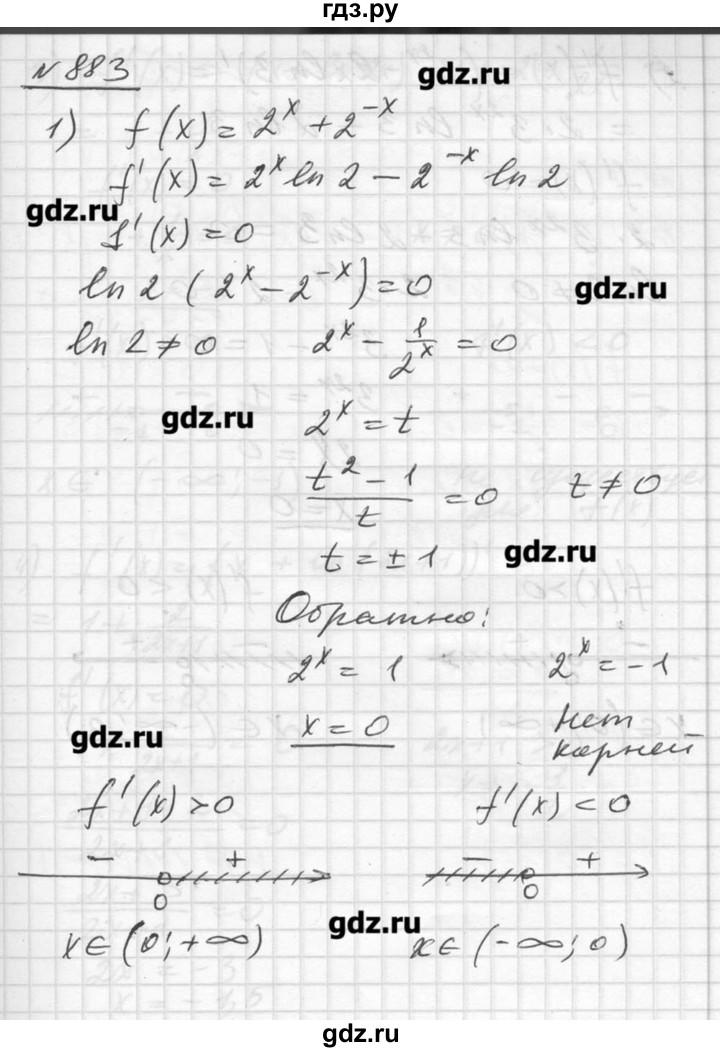 гдз.ру
N 883
gdz.ru
1) f(x) = 2^x + 2^{-x}
f'(x) = 2^x ln 2 - 2^{-x} ln 2
gdz.ru
f'(x) = 0
ln 2 (2^x - 2^{-x}) = 0
gdz.ru
ln 2 ≠ 0   2^x - 1/2^x = 0
gdz.ru
2^x = t
(t^2 - 1)/t = 0   t ≠ 0
t = ± 1
gdz.ru
Обратно:
2^x = 1   2^x = -1
x = 0   Нет
корней
gdz.ru
f'(x) > 0   f'(x) < 0
- +   - +
0   0
gdz.ru
x ∈ (0; +∞)   x ∈ (-∞; 0)
gdz.ru